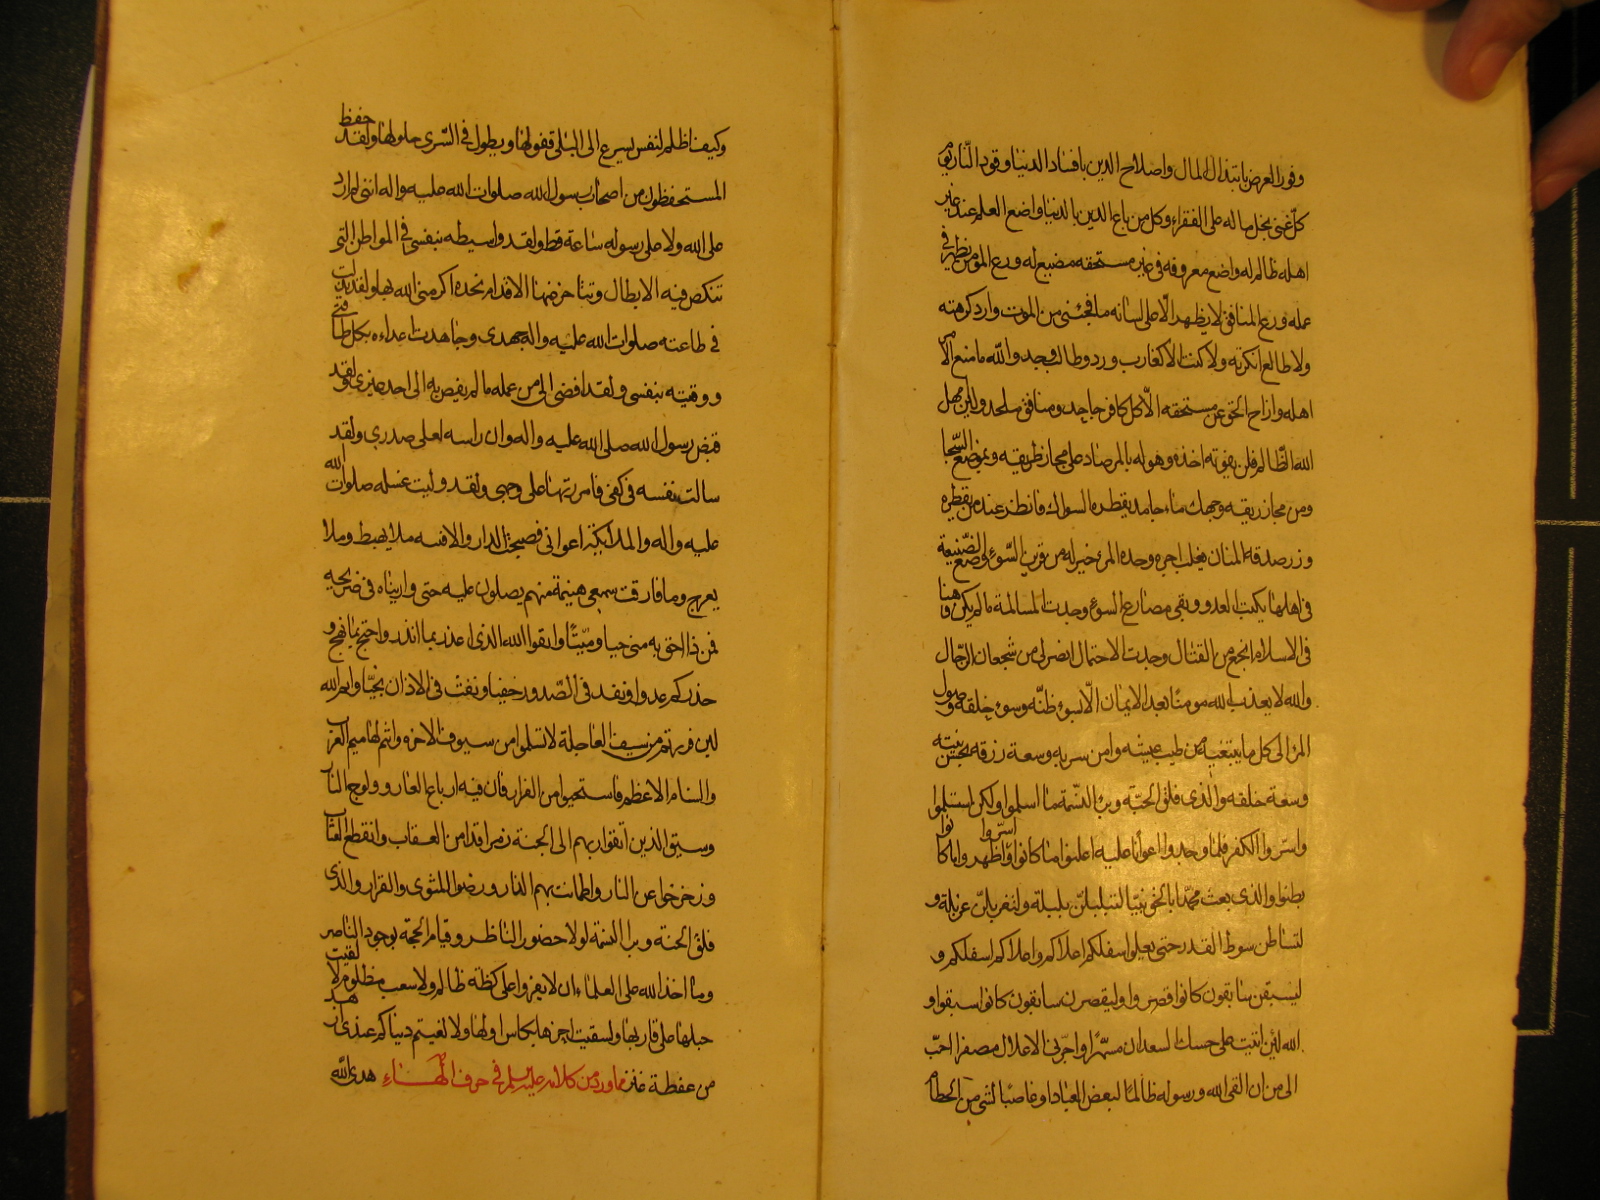 وفور العرض بابتذال المال واصلاح الدين بافساد الدنيا وقود النار يوم
كل غنى بخل بماله على الفقراء وكل من باع الدين بالدنيا واضع العلم عند غير
اهله ظالم له واضع معروفه فى غير مستحقه مضيع له ورع المؤمن يظهر فى
عمله وورع المنافق لا يظهر الّا على لسانه ما فجئنى من الموت وارد كرهته
ولا طالع انكرته ولا كنت الا كغارب ورد وطالب وجد والله ما منع الامر
اهله وازاح الحق عن مستحقه الّا كل كافر جاحد ومنافق ملحد ولئن امهل
الله الظّالم فلن يفوته اخذه وهو له بالمرصاد على مجاز طريقه وبموضع الشجا
ومن مجاز ريقه وجهك ماء جامد يقطره السوال فانظر عند من تقطره
وزر صدقة المنان يغلب اجره وحدة المرء خير له من قرين السّوء وضع الصّنيعة
فى اهلها يكبت العدو ويقى مصارع السوء وجدت المسالمة ما لم يكن وهنا
فى الاسلام انجع من القتال وجدت الاحتمال انصر لى من شجعان الرّجال
والله لا يعذب الله مومنًا بعد الايمان الّا بسوء ظنّه وسوء خلقه وصول
المرء الى كل ما يبتغيه من طيب عيشه وامن سربه وسعة رزقه بحسن نيته
وسعة خلقه والذى فلق الحبّة وبرا النّسمة ما اسلموا ولكن استسلموا
واسرّوا الكفر فلما وجدوا اعوانا عليه اعلنوا ما كانوا اسرّوا واظهروا ما كانوا
بطنوا والذى بعث محمّدا بالحق نبيّا لتبلبلنّ بلبلة ولتغربلنّ غربلة و
لتساطن سوط القدر حتى يعلوا سفلكم اعلاكم واعلاكم اسفلكم و
ليسبقن سابقون كانوا قصروا وليقصرن سابقون كانوا سبقوا و
الله لئن ابيت على حسك السعدان مسهّرًا واجرّ فى الاغلال مصفدا احبّ
الى من ان القى الله ورسوله ظالمًا لبعض العباد او غاصبًا لشئ من الحطام
وكيف اظلم لنفس يسرع الى البلى قفولها ويطول فى الثرى حلولها ولقد حفظ
المستحفظون من اصحاب رسول الله صلوات الله عليه واله اننى لم ارد
على الله ولا على رسوله ساعة قط ولقد واسيته بنفسى فى المواطن التى
تنكص فيه الابطال وتتاخر عنها الاقدام نجدة اكرمنى الله بها ولقد بذلت
فى طاعته صلوات الله عليه واله جهدى وجاهدت اعداءه بكل طاقتى
ووقيته بنفسى ولقد افضى الى من علمه ما لم يفض به الى احد غيرى ولقد
قبض رسول الله صلى الله عليه واله وان راسه لعلى صدرى ولقد
سالت نفسه فى كفى فامررتها على وجهى ولقد وليت غسله صلوات الله
عليه واله والملائكة اعوانى فضجت الدار والافنية ملا يهبط وملا
يعرج وما فارقت سمعى هينمة منهم يصلون عليه حتى واريناه فى ضريحه
فمن ذا احق به منى حيا وميّتًا واتقوا الله الذى اعذر بما انذر واحتج بما نهج و
حذركم عدوا نفذ فى الصّدور خفيا ونفث فى الاذان نجيّا وايم الله
لئن فررتم من سيف العاجلة لا تسلموا من سيوف الاخرة وانتم لهاميم العرب
والسنام الاعظم فاستحيوا من الفرار فان فيه ادراع العار وولوج النار
وسيق الذين اتقوا ربهم الى الجنة زمرا قد امن العقاب وانقطع العتاب
وزحزحوا عن النار واطمانت بهم الدار ورضوا المثوى والقرار والذى
فلق الحبة وبرا النسمة لولا حضور الناظر وقيام الحجة بوجود الناصر
وما اخذ الله على العلماء ان لا يقروا على كظة ظالم ولا سغب مظلوم لالقيت
حبلها على غاربها ولسقيت اخرها بكاس اولها ولالفيتم دنياكم هذه عندى ازهد
من عفطة عنز مما ورد من كلامه عليه السلام فى حرف الهاء هدى الله